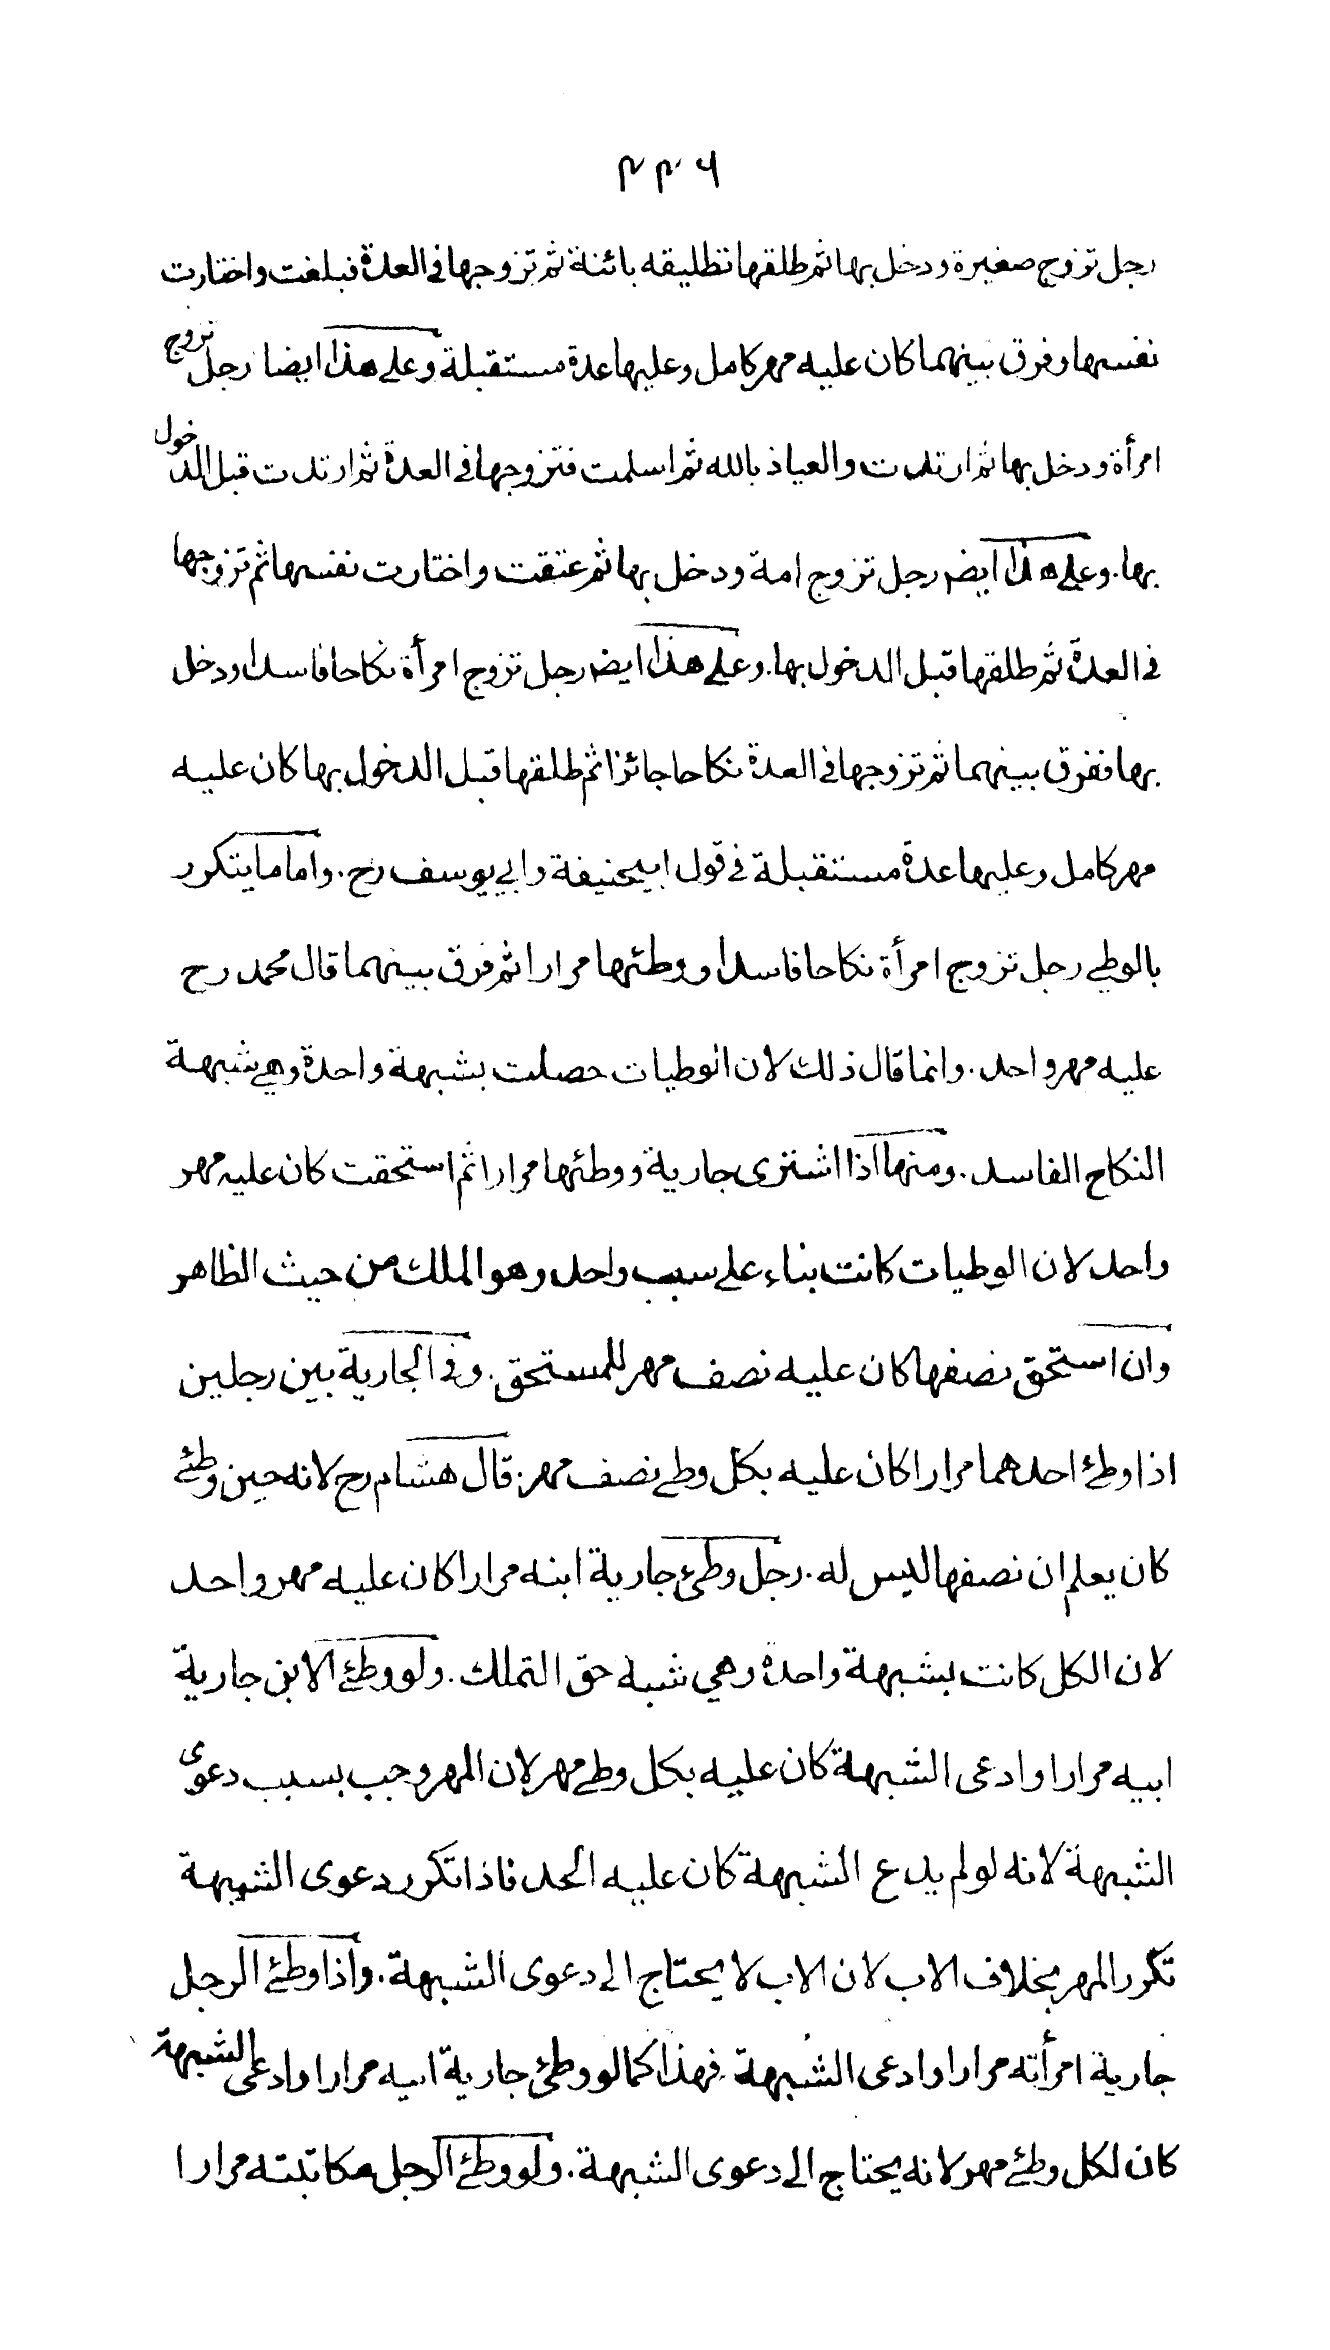 ٤٣٦
رجل تزوج صغيرة ودخل بها ثم طلقها تطليقه بائنة ثم تزوجها فى العدة فبلغت واختارت
نفسها وفرق بينهما كان عليه مهر كامل وعليها عدة مستقبلة وعلى هذا ايضا رجل تزوج
امرأة ودخل بها ثم ارتدت والعياذ بالله ثم اسلمت فتزوجها فى العدة ثم ارتدت قبل الدخول
بها. وعلى هذا ايضـ رجل تزوج امة ودخل بها ثم عتقت واختارت نفسها ثم تزوجها
فى العدة ثم طلقها قبل الدخول بها. وعلى هذا ايضـ رجل تزوج امرأة نكاحا فاسدا ودخل
بها ففرق بينهما ثم تزوجها فى العدة نكاحا جائزا ثم طلقها قبل الدخول بها كان عليه
مهر كامل وعليها عدة مستقبلة فى قول ابيحنيفة وابي يوسف رح. واما ما يتكرر
بالوطي رجل تزوج امرأة نكاحا فاسدا ووطئها مرارا ثم فرق بينهما قال محمد رح
عليه مهر واحد. وانما قال ذلك لان الوطيات حصلت بشبهة واحدة وهي شبهة
النكاح الفاسد. ومنها اذا اشترى جارية ووطئها مرارا ثم استحقت كان عليه مهر
واحد لان الوطيات كانت بناء على سبب واحد وهو الملك من حيث الظاهر
وان استحق نصفها كان عليه نصف مهر للمستحق. وفى الجارية بين رجلين
اذا وطئ احدهما مرارا كان عليه بكل وطي نصف مهر. قال هشام رح لانه حين وطئ
كان يعلم ان نصفها ليس له. رجل وطئ جارية ابنه مرارا كان عليه مهر واحد
لان الكل كانت بشبهة واحدة وهي شبه حق التملك. ولو وطئ الابن جارية
ابيه مرارا وادعى الشبهة كان عليه بكل وطي مهر لان المهر وجب بسبب دعوى
الشبهة لانه لو لم يدع الشبهة كان عليه الحد فاذا تكرر دعوى الشبهة
تكرر المهر بخلاف الاب لان الاب لا يحتاج الى دعوى الشبهة. واذا وطئ الرجل
جارية امرأته مرارا وادعى الشبهة فهذا كما لو وطئ جارية ابيه مرارا وادعى الشبهة
كان لكل وطئ مهر لانه يحتاج الى دعوى الشبهة. ولو وطئ الرجل مكاتبته مرارا